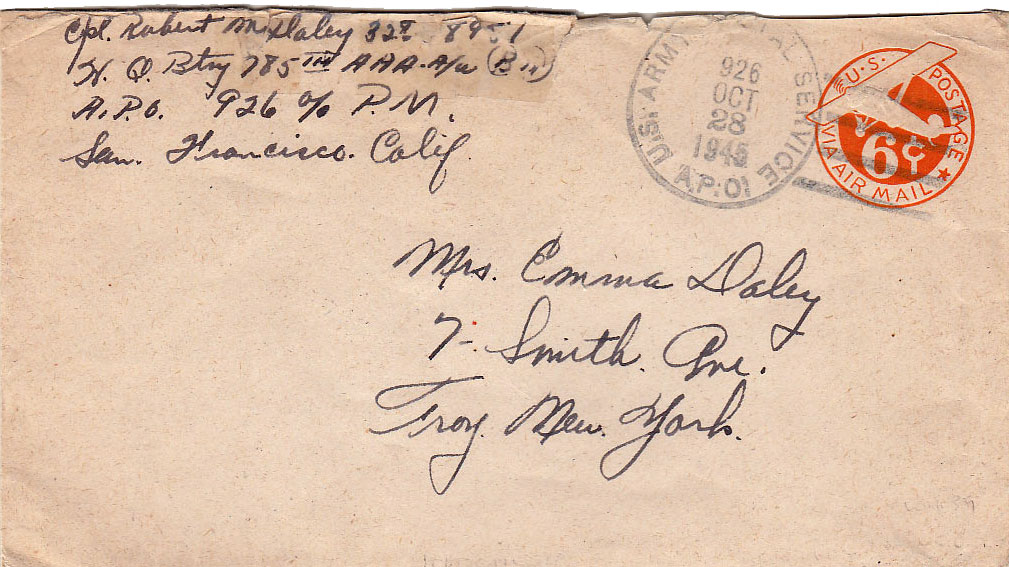 Cpl. Robert M. Daley 32 8951
H. Q. Btry 785TH AAA. A/W (Bn)
A.P.O. 926 c/o P.M.
San. Francisco. Calif.
U.S. ARMY POSTAL SERVICE
926
OCT
28
1945
A.P.O.
U.S. POSTAGE
6¢
VIA AIR MAIL
Mrs. Emma Daley
7- Smith. Ave.
Troy. New. York.